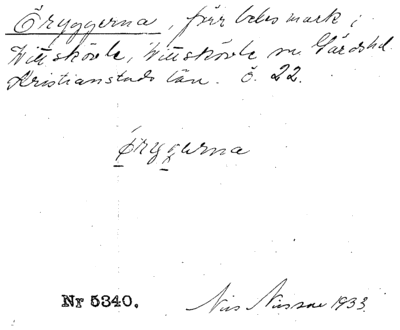 Öryggerna, förr betesmark i
Wittskövle, Wittskövle sn Gärds hd
Kristianstads län. E. 22.
Öryggerna
Nr 5340. Nils Nilsson 1933.